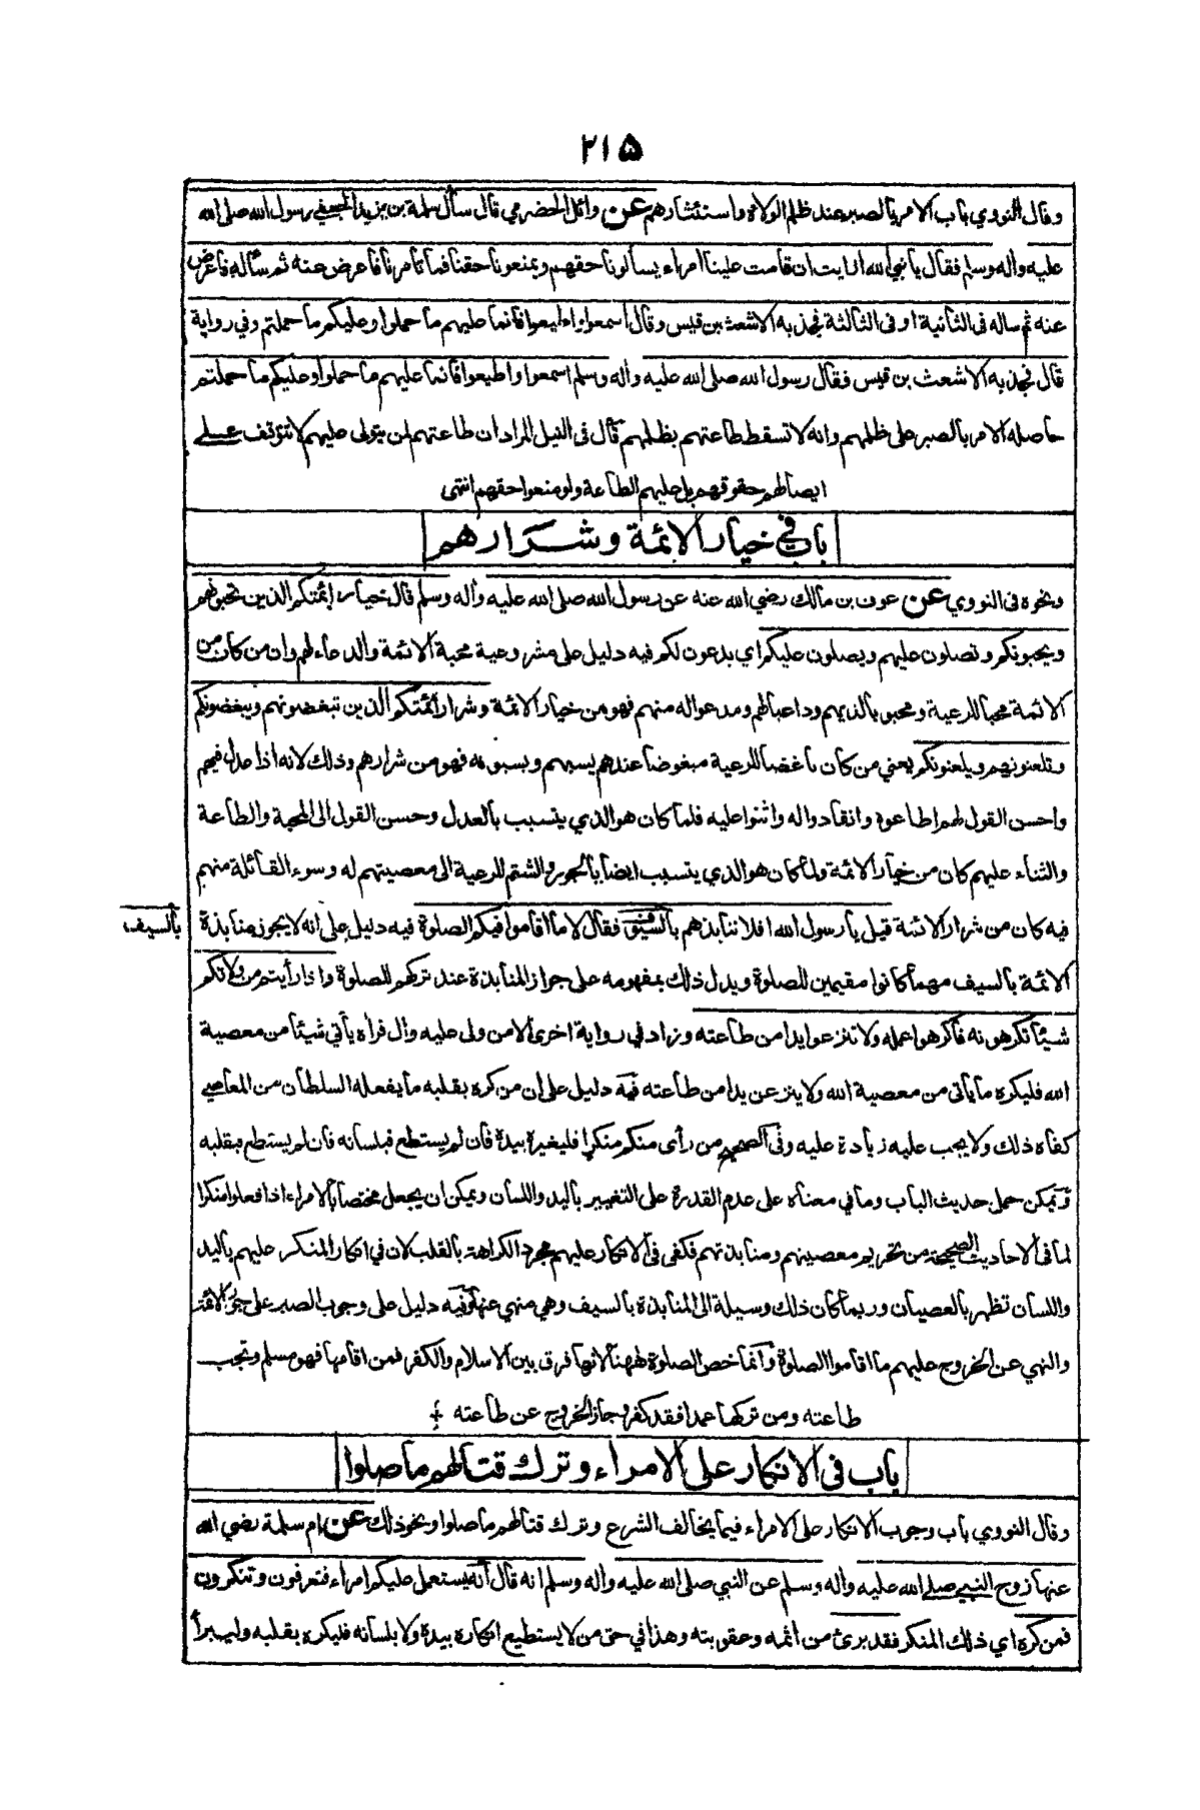 ٢١٥
وقال النووي باب الامر بالصبر عند ظلم الولاة واستئثارهم عن وائل الحضرمي قال سأل سلمة بن يزيد الجعفي رسول الله صلى الله
عليه واله وسلم فقال يا نبي الله ارايت ان قامت علينا امراء يسألونا حقهم ويمنعونا حقنا فما تامرنا فاعرض عنه ثم سأله فاعرض
عنه ثم ساله فى الثانية او فى الثالثة فجذبه الاشعث بن قيس وقال اسمعوا واطيعوا فانما عليهم ما حملوا وعليكم ما حملتم وفي رواية
قال فجذبه الاشعث بن قيس فقال رسول الله صلى الله عليه واله وسلم اسمعوا واطيعوا فانما عليهم ما حملوا وعليكم ما حملتم
حاصله الامر بالصبر على ظلمهم وانه لا تسقط طاعتهم بظلمهم قال فى النيل المراد ان طاعتهم لمن يتولى عليهم لا تتوقف على
ايصالهم حقوقهم بل عليهم الطاعة ولو منعوا حقهم انتهى
باب في خيار الائمة وشرارهم
ونحوه فى النووي عن عوف بن مالك رضي الله عنه عن رسول الله صلى الله عليه واله وسلم قال خيار ائمتكم الذين تحبونهم
ويحبونكم وتصلون عليهم ويصلون عليكم اي يدعون لكم فيه دليل على مشروعية محبة الائمة والدعاء لهم وان من كان من
الائمة محبا للرعية ومحبوبا لديهم وداعيا لهم ومدعوا له منهم فهو من خيار الائمة وشرار ائمتكم الذين تبغضونهم ويبغضونكم
وتلعنونهم ويلعنونكم يعني من كان باغضا للرعية مبغوضا عندهم يسبهم ويسبونه فهو من شرارهم وذلك لانه اذا عدل فيهم
واحسن القول لهم اطاعوه وانقادوا له واثنوا عليه فلما كان هو الذي يتسبب بالعدل وحسن القول الى المحبة والطاعة
والثناء عليهم كان من خيار الائمة ولما كان هو الذي يتسبب ايضا بالجور والشتم للرعية الى معصيتهم له وسوء القالة منهم
فيه كان من شرار الائمة قيل يا رسول الله افلا ننابذهم بالسيف فقال لا ما اقاموا فيكم الصلوة فيه دليل على انه لا يجوز منابذة
بالسيف
الائمة بالسيف مهما كانوا مقيمين للصلوة ويدل ذلك بمفهومه على جواز المنابذة عند تركهم للصلوة واذا رأيتم من ولاتكم
شيئا تكرهونه فاكرهوا عمله ولا تنزعوا يدا من طاعته وزاد في رواية اخرى الا من ولى عليه وال فراه يأتي شيئا من معصية
الله فليكره ما يأتى من معصية الله ولا ينزعن يدا من طاعته فيه دليل على ان من كره بقلبه ما يفعله السلطان من المعاصي
كفاه ذلك ولا يجب عليه زيادة عليه وفى الصحيح من رأى منكم منكرا فليغيره بيده فان لم يستطع فبلسانه فان لم يستطع فبقلبه
ويمكن حمل حديث الباب وما في معناه على عدم القدرة على التغيير باليد واللسان ويمكن ان يجعل مختصا بالامراء اذا فعلوا منكرا
لما فى الاحاديث الصحيحة من تحريم معصيتهم ومنابذتهم فكفى فى الانكار عليهم مجرد الكراهة بالقلب لان في انكار المنكر عليهم باليد
واللسان تظهر بالعصيان وربما كان ذلك وسيلة الى المنابذة بالسيف وهي منهي عنها وفيه دليل على وجوب الصبر على جور الائمة
والنهي عن الخروج عليهم ما اقاموا الصلوة وانما خص الصلوة ههنا لانها فرق بين الاسلام والكفر فمن اقامها فهو مسلم وتجب
طاعته ومن تركها عمدا فقد كفر وجاز الخروج عن طاعته
باب فى الانكار على الامراء وترك قتالهم ما صلوا
وقال النووي باب وجوب الانكار على الامراء فيما يخالف الشرع وترك قتالهم ما صلوا ونحو ذلك عن ام سلمة رضي الله
عنها زوج النبي صلى الله عليه واله وسلم عن النبي صلى الله عليه واله وسلم انه قال انه يستعمل عليكم امراء فتعرفون وتنكرون
فمن كره اي ذلك المنكر فقد برئ من اثمه وعقوبته وهذا في حق من لا يستطيع انكاره بيده ولا بلسانه فليكره بقلبه وليبرأ